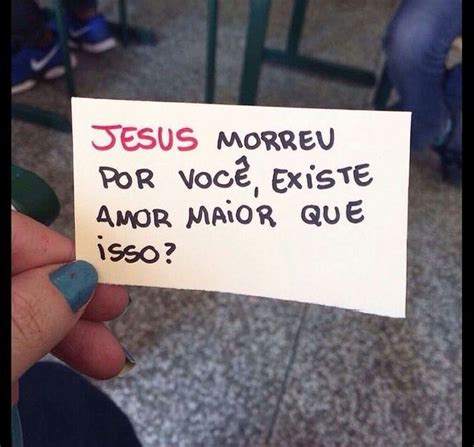 JESUS MORREU
POR VOCÊ, EXISTE
AMOR MAIOR QUE
ISSO?